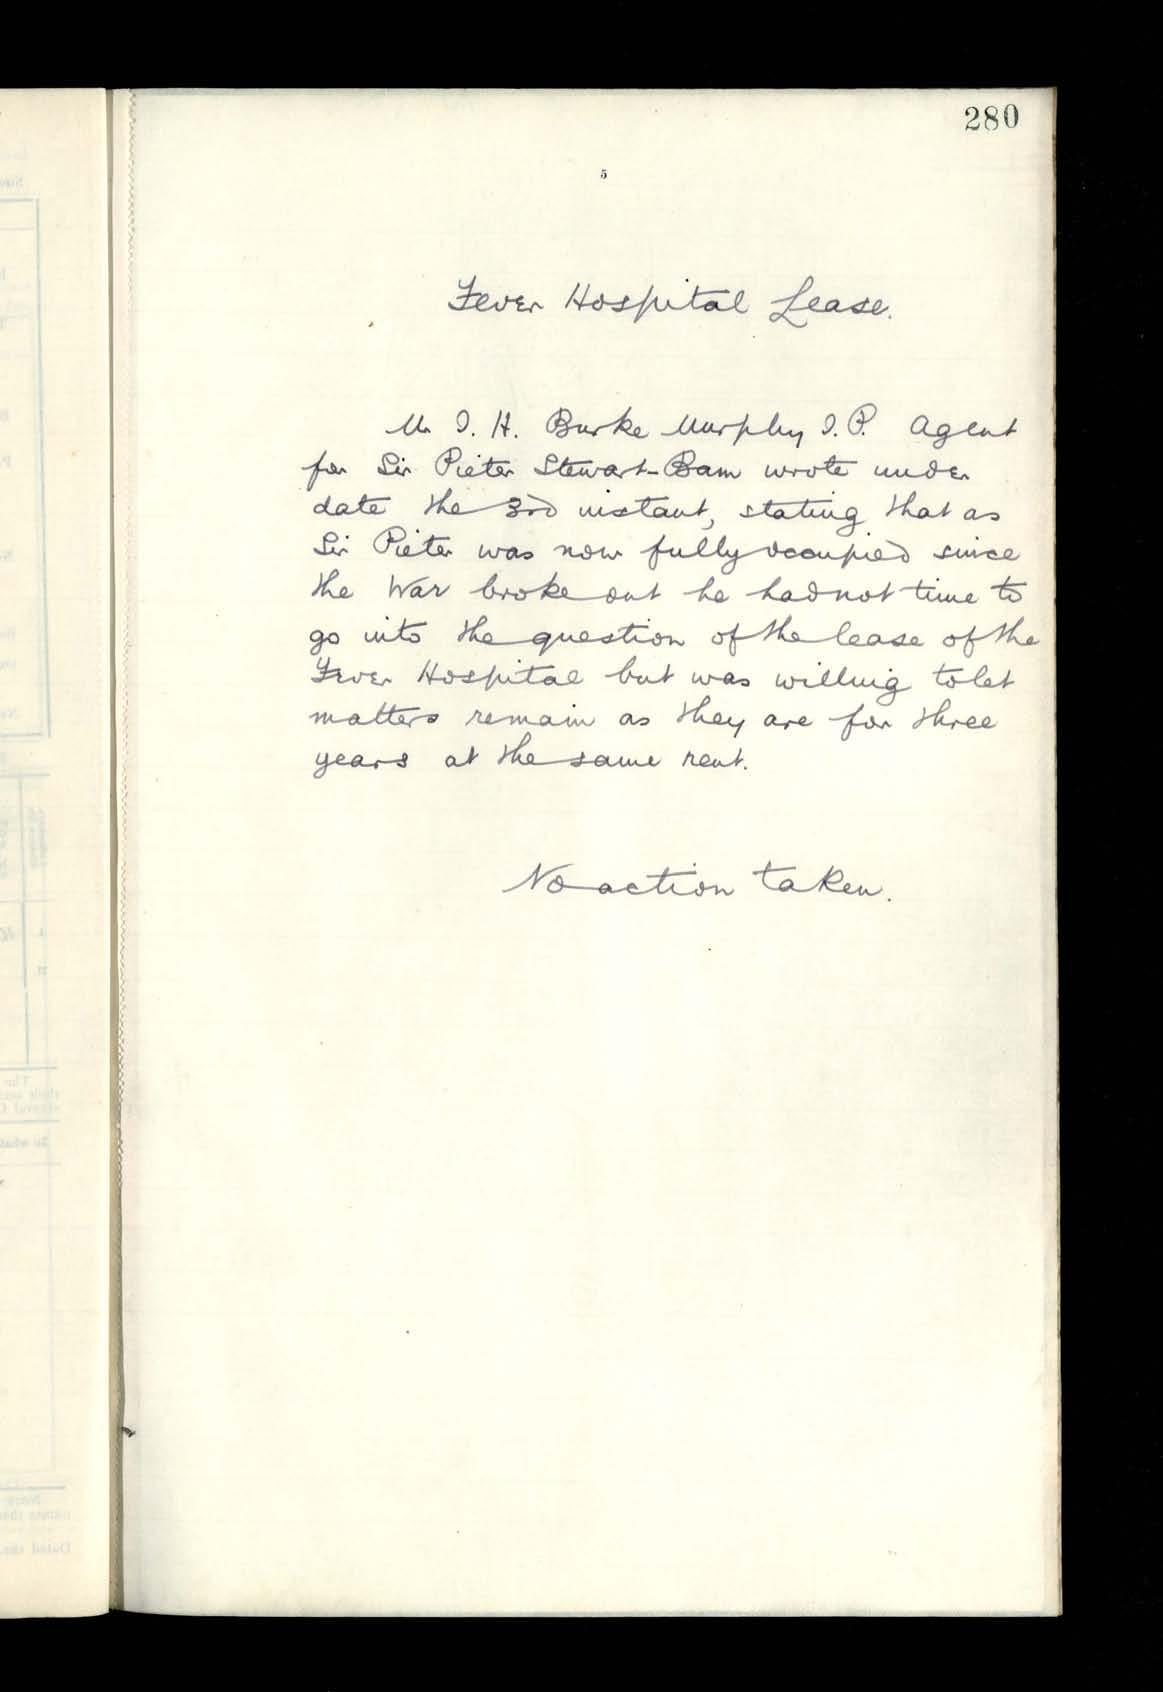 280
5
Fever Hospital Lease.
Mr J. H. Burke Murphy J.P. Agent
for Sir Pieter Stewart-Bam wrote under
date the 3rd instant, stating that as
Sir Pieter was now fully occupied since
the War broke out he had not time to
go into the question of the lease of the
Fever Hospital but was willing to let
matters remain as they are for three
years at the same rent.
No action taken.